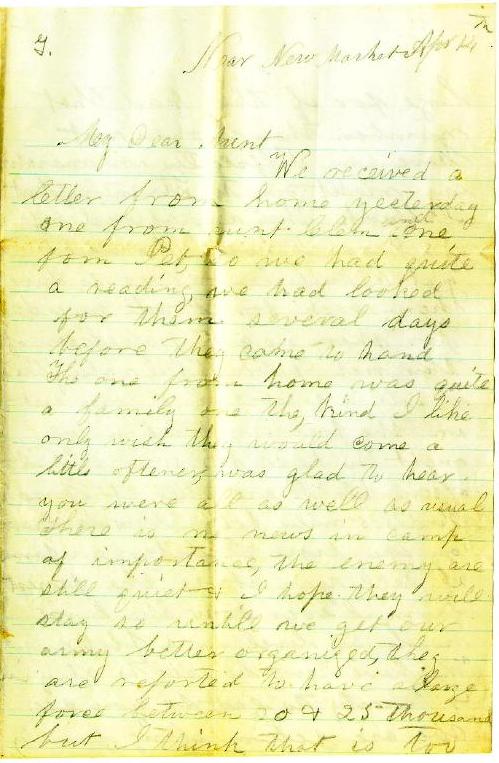 Near New Market Apr 14th
My Dear Aunt
We received a
letter from home yesterday
one from aunt Clem and one
fom Pet, so we had quite
a reading, we had looked
for them several days
before they came to hand
The one from home was quite
a family one the, kind I like
only wish they would come a
little oftener, was glad to hear
you were all as well as usual
there is no news in camp
of importance, the enemy are
still quiet & I hope they will
stay so untill we get our
army better organized, they
are reported to have a large
force between 20 & 25 thousand
but I think that is too